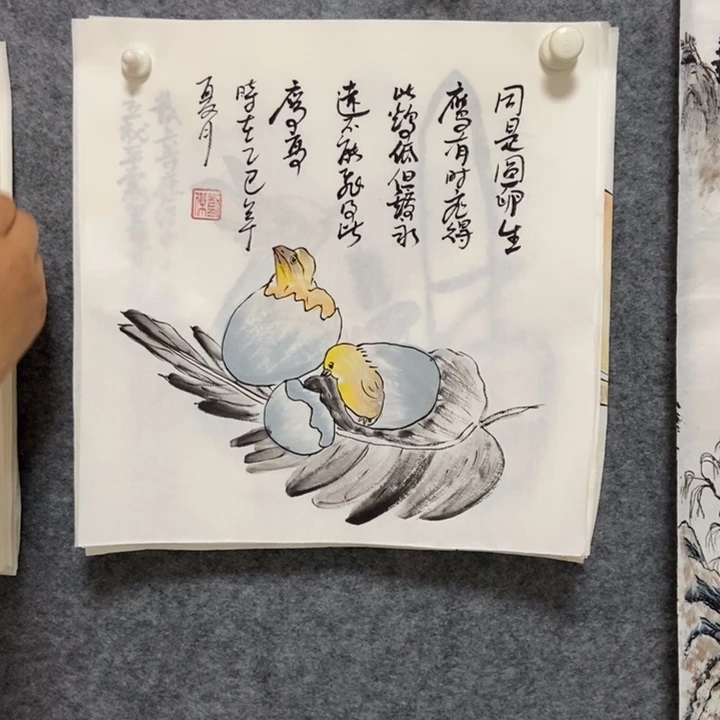 同是圆卵生
鹰有时飞得
比鸡低但鸡永
远不能飞得比
鹰高
時在乙巳年
夏月